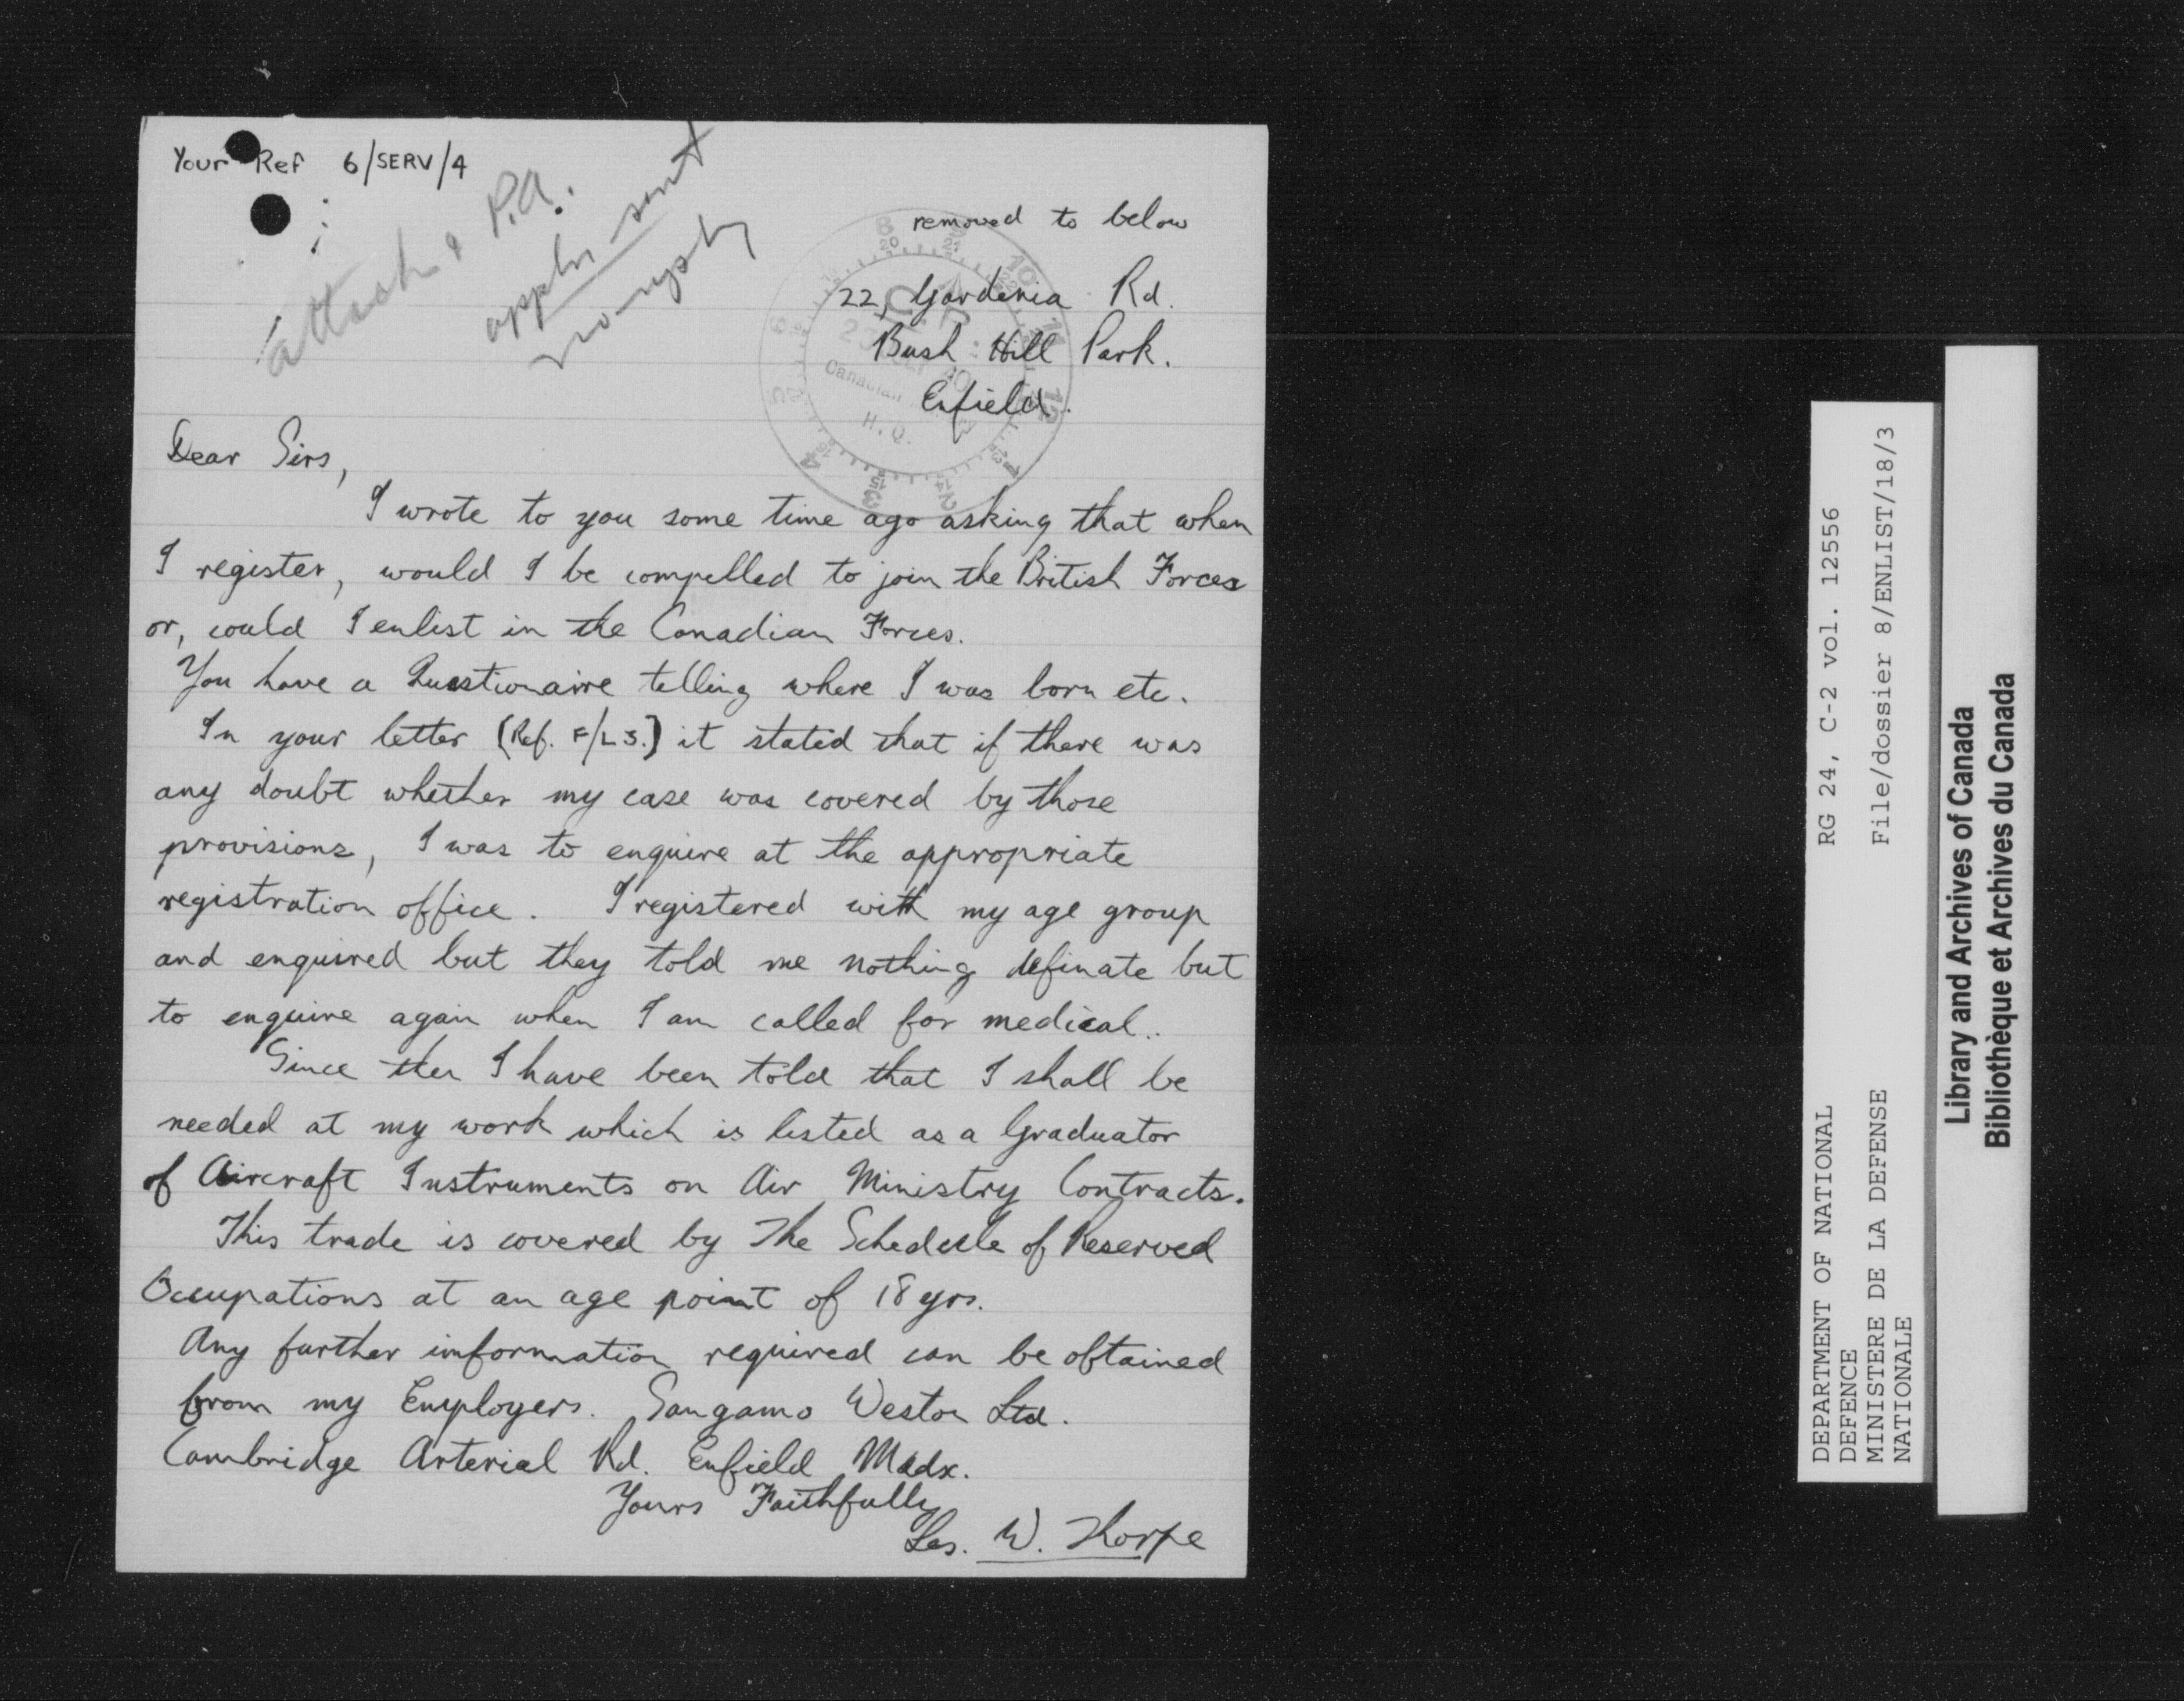 Your Ref 6/SERV/4
attach & P.A.
appln sent
no reply
removed to below
22, Gardenia Rd.
Bush Hill Park.
Enfield.
Canadian
H.Q.
Dear Sirs,
I wrote to you some time ago asking that when
I register, would I be compelled to join the British Forces
or, could I enlist in the Canadian Forces.
You have a Questionaire telling where I was born etc.
In your letter (Ref. F/L 3.) it stated that if there was
any doubt whether my case was covered by those
provisions, I was to enquire at the appropriate
registration office. I registered with my age group
and enquired but they told me nothing definate but
to enquire again when I am called for medical..
Since then I have been told that I shall be
needed at my work which is listed as a Graduator
of Aircraft Instruments on Air Ministry Contracts.
This trade is covered by The Schedule of Reserved
Occupations at an age point of 18 yrs.
Any further information required can be obtained
from my Employers. Sangamo Weston Ltd.
Cambridge Arterial Rd. Enfield Mddx.
Yours Faithfully
Les. W. Thorpe
DEPARTMENT OF NATIONAL DEFENCE
RG 24, C-2 vol. 12556
MINISTERE DE LA DEFENSE NATIONALE
File/dossier 8/ENLIST/18/3
Library and Archives of Canada
Bibliothèque et Archives du Canada